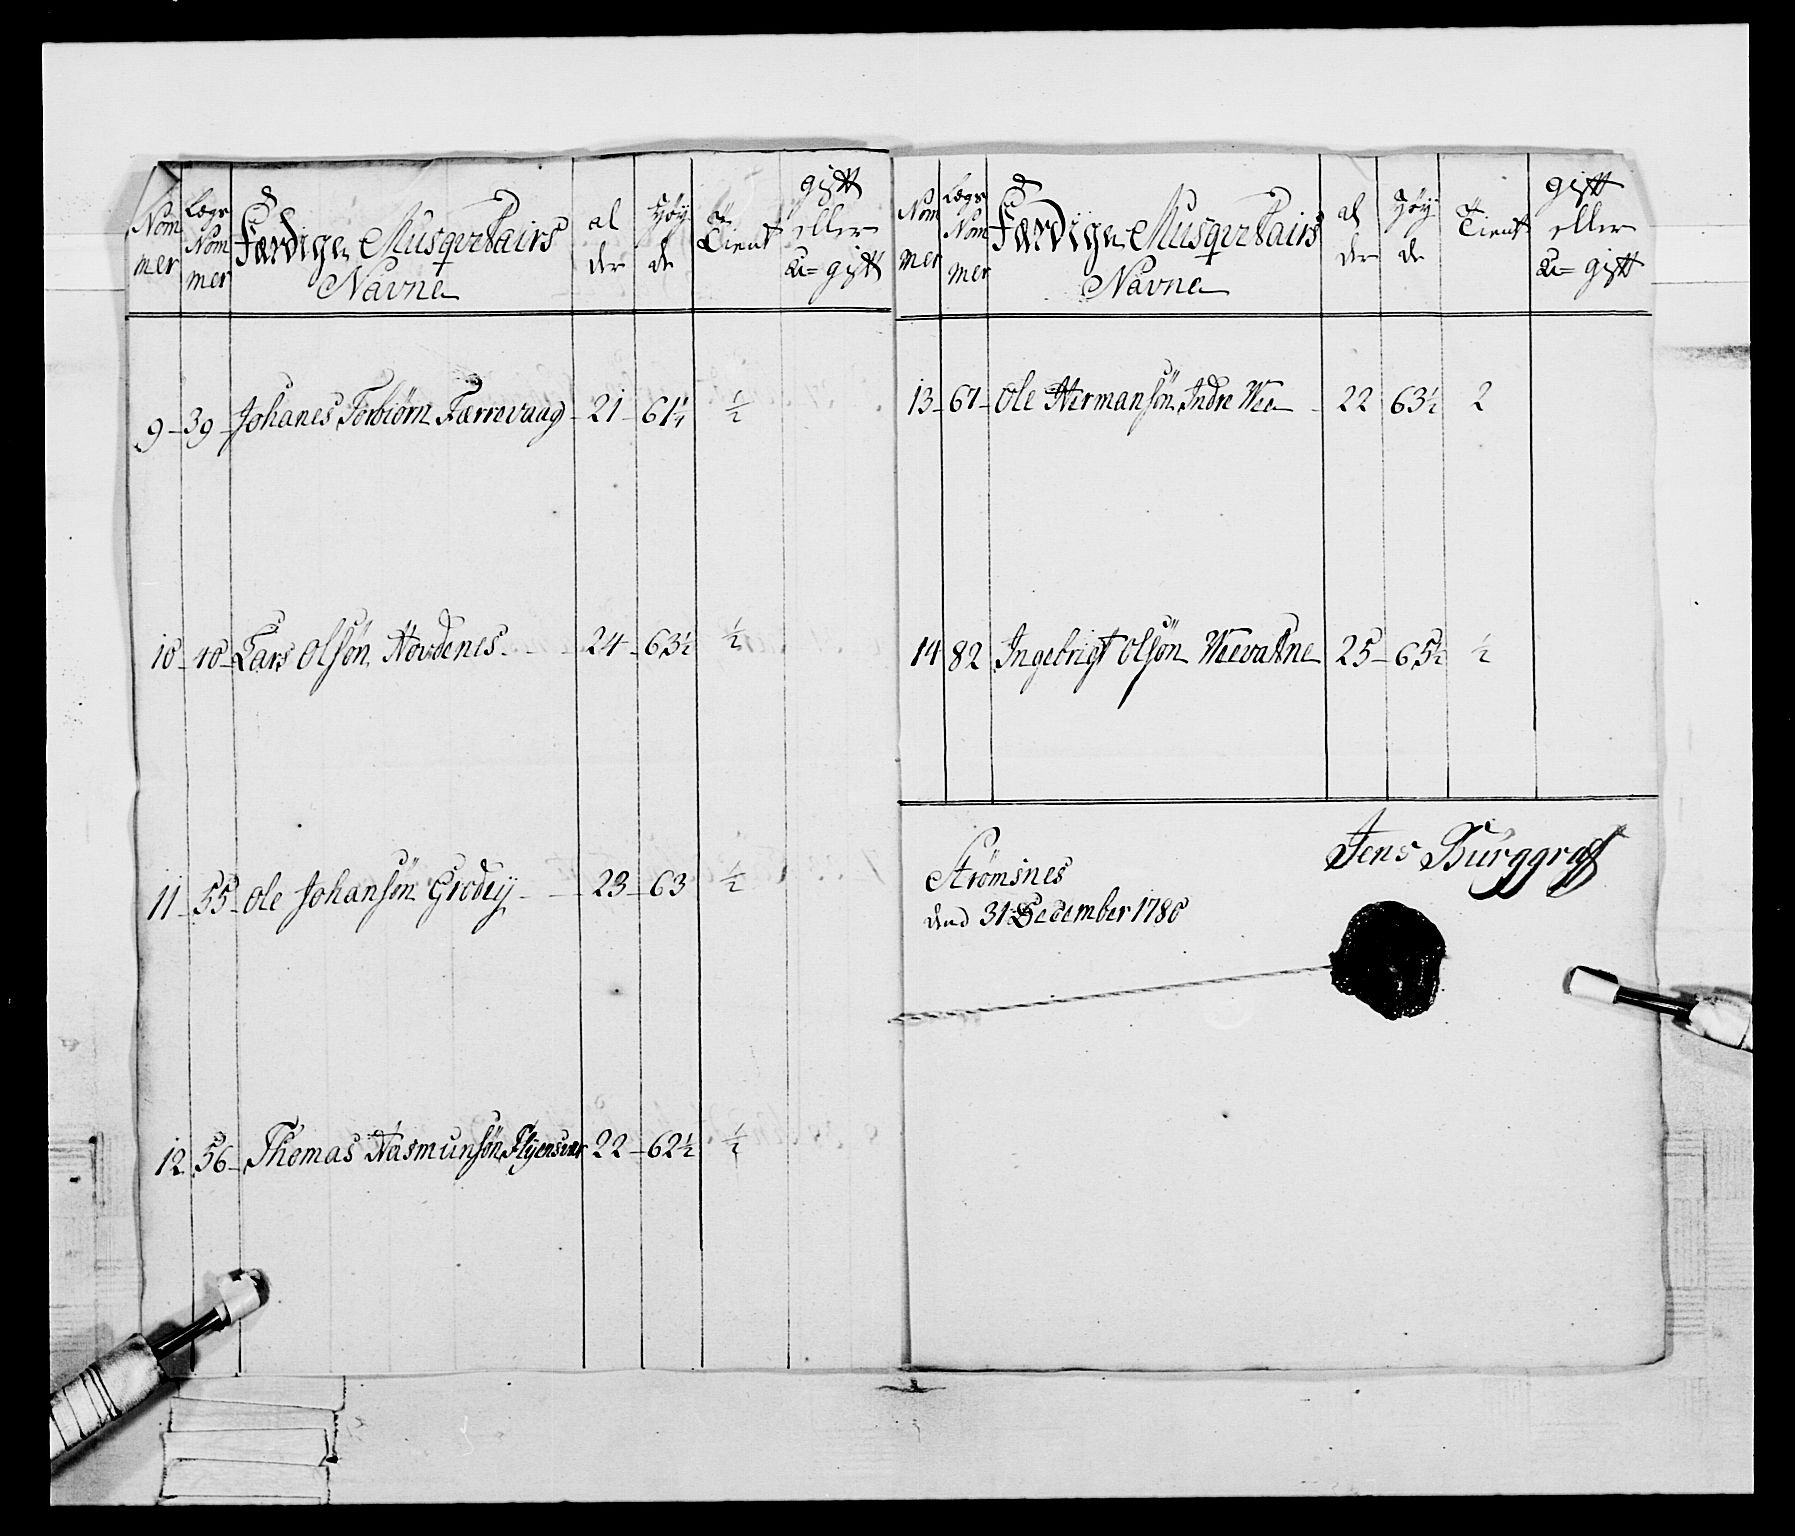 Nom
mer
Lægs
Nom
mer
Færdige Musqvetairs
Navne
al
der
Høÿ
de
Tient
gift
eller
U= gift
9 - 39 - Johanes Torbiörn Færrevaag - 21 - 61¼ ½
10 - 40 - Lars Olsön Hovdenes - 24 - 63½ ½
11 - 55 - Ole Johansön Grodeÿ - 23 - 63 ½
12 56 - Thomas Rasmunsön 22 - 62½ ½
Nom
mer
Lægs
Nom
mer
Færdige Musqvetairs
Navne
al
der
Høÿ
de
Tient
gift
eller
U= gift
13 - 67 - Ole Hermansön Indre Wee - 22 63½ 2
14 82 Ingebrigt Olsön 25 - 65½ ½
Strömsnes
dend 31 December 1780
Jens Burggraf